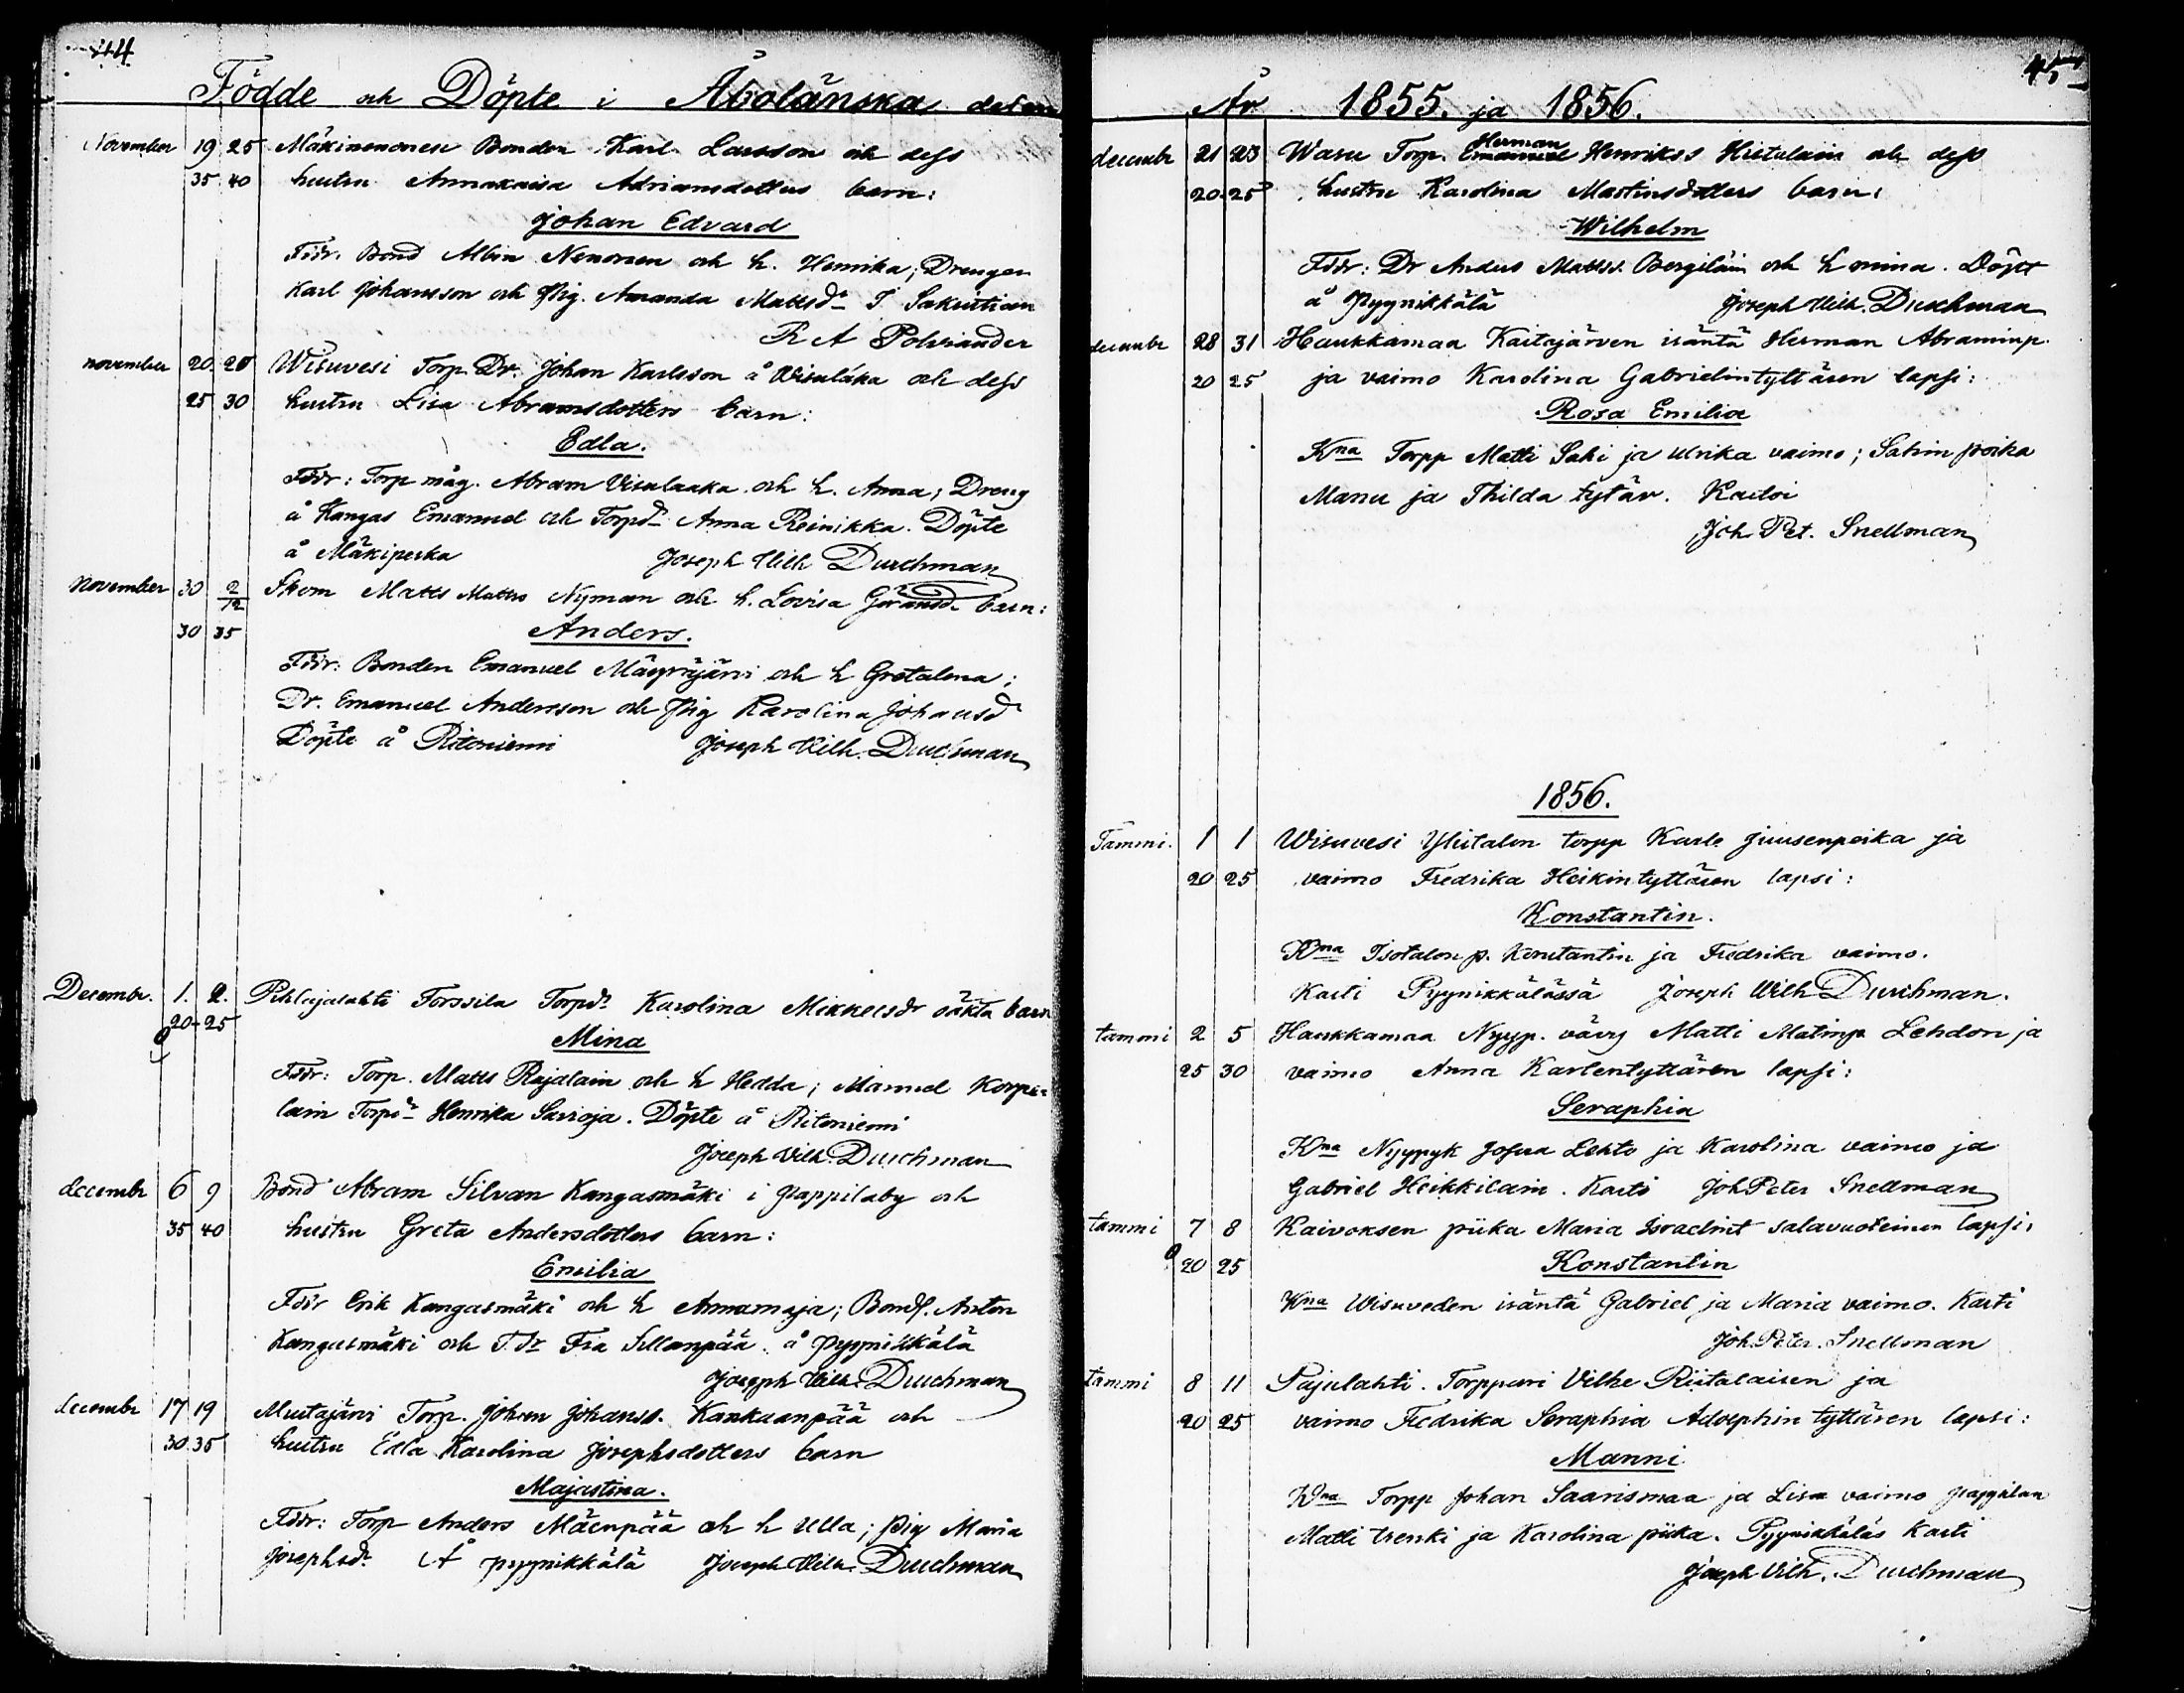 44
Födde och Döpte i Åbolänska delen
November 19 25 Mäkinenonen Bonden Karl Larsson och dess
35 40 hustru Annakaisa Adriansdotters barn:
Johan Edvard
Fddr. Bond Albin Nenonen och h. Henrika; Drengen
Karl Johansson och Pig. Amanda Mattsdr
R A Polviander
november 20 20 Wisuvesi Torp. Dr. Johan Karlsson å Wisulaka och dess
25 30 hustru Lisa Abramsdotters barn:
Edla.
Fddr: Torp måg. Abram Visulaaka och h. Anna; Dreng
å Kangas Emanuel och Torpdr Anna Reinikka. Döpte
å Mäkipeska Joseph Vilh Durchman
november 30 2/12 Skom Matts Matts Nyman och h. Lovisa Göransd. barn:
30 35 Anders.
Fddr: Bonden Emanuel Mäyryjärvi och h Gretalena;
Dr. Emanuel Andersson och Pig Karolina Johansdr
Döpte å Ritoniemi Joseph Vilh. Durchman
Decembr. 1. 2. Pihlajalahti Forssila Torpdr Karolina Mikkelsdr oäkta barn
20-25
Mina
Fddr: Torp. Matts Rajalain och h Hedda; Manuel Korpe=
lain Torpdr Henrika Sarioja. Döpte å Ritoniemi
Joseph Vilh. Durchman
decembr 6 9 Bond Abram Silvan Kangasmäki i Pappilaby och
35 40 hustru Greta Andersdotters barn:
Emilia
Fddr Erik Kangasmäki och h Annamaja; Bonds. Anton
Kangasmäki och T.dr Fia Sillanpää. å Pyynikkälä
Joseph Vilh. Durchman
decembr 17 19 Mustajärvi Torp. Johan Johanss. Kankaanpää och
30 35 hustru Edla Karolina Josephsdotters barn
Majastina.
Fddr: Torp Anders Mäenpää och h Ulla; pig Maria
Josephsdr. Å pyynikkälä Joseph Vilh. Durchman
45
År 1855. ja 1856.
decembr 21 23 Wasu Torp. Herman Emanuel Henrikss Hietalain och dess
20-25 hustru Karolina Martinsdotters barn:
Wilhelm
Fddr: Dr Anders Mattss. Bergiläin och h mina. Döpt
å Pyynikkälä Joseph Vilh. Durchman
decembr 28 31 Haukkamaa Kaitajärven isäntä Herman Abraminp.
20 25 ja vaimo Karolina Gabrielintyttären lapsi:
Rosa Emilia
Kna Torpp Matti Sahi ja Ulrika vaimo; Sahin poika
Manu ja Thilda tytär. Kastoi
Joh. Pet. Snellman
1856.
Tammi. 1 1 Wisuvesi Ylitalon torpp Karle Juusenpoika ja
20 25 vaimo Fredrika Heikintyttären lapsi:
Konstantin.
Kna Isotalon p. Konstantin ja Fredrika vaimo.
Kasti Pyynikkälässä Joseph Wilh Durchman.
tammi 2 5 Haukkamaa Nyyp. vävy Matti Matinp Lehdon ja
25 30 vaimo Anna Karlentyttären lapsi:
Seraphia
Kna Nyypyk Josua Lehto ja Karolina vaimo ja
Gabriel Heikkilain. Kasti Joh Peter Snellman
tammi 7 8 Kaivoksen piika Maria Israelint salavuoteinen lapsi:
20 25 Konstantin
Kna Wisuveden isäntä Gabriel ja Maria vaimo. Kasti
Joh. Peter. Snellman
tammi 8 11 Pajulahti. Torppari Vilhe Riitalaisen ja
20 25 vaimo Fredrika Seraphia Adolphin tyttären lapsi:
Manni
Kna Torpp Johan Saarismaa ja Lisa vaimo pappilan
Matti trenki ja Karolina piika. Pyynikkäläs Kasti
Joseph Vilh. Durchman